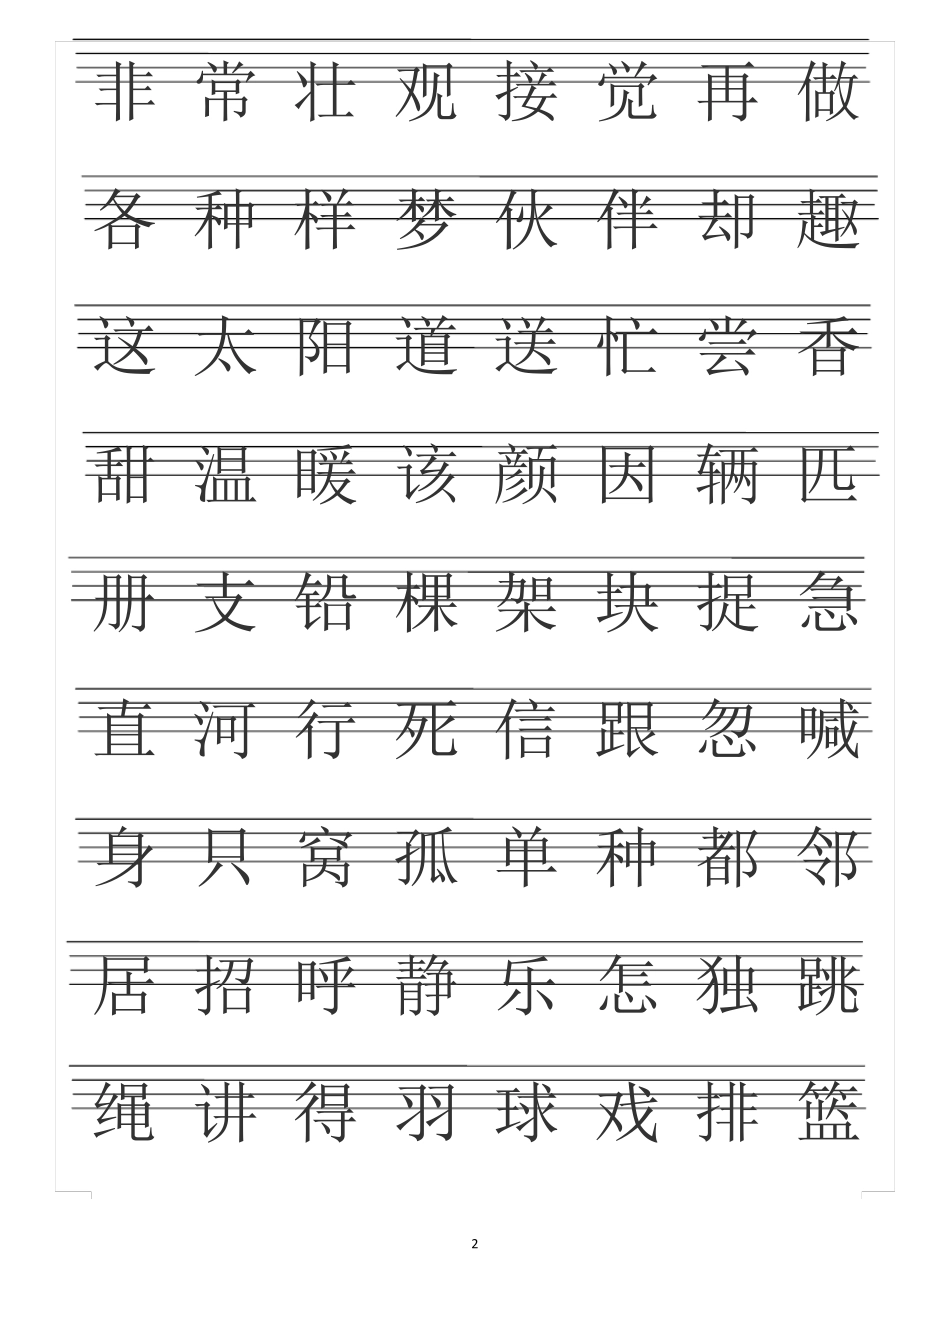 非常壮观接觉再做
各种样梦伙伴却趣
这太阳道送忙尝香
甜温暖该颜因辆匹
册支铅棵架块捉急
直河行死信跟忽喊
身只窝孤单种都邻
居招呼静乐怎独跳
绳讲得羽球戏排篮
2